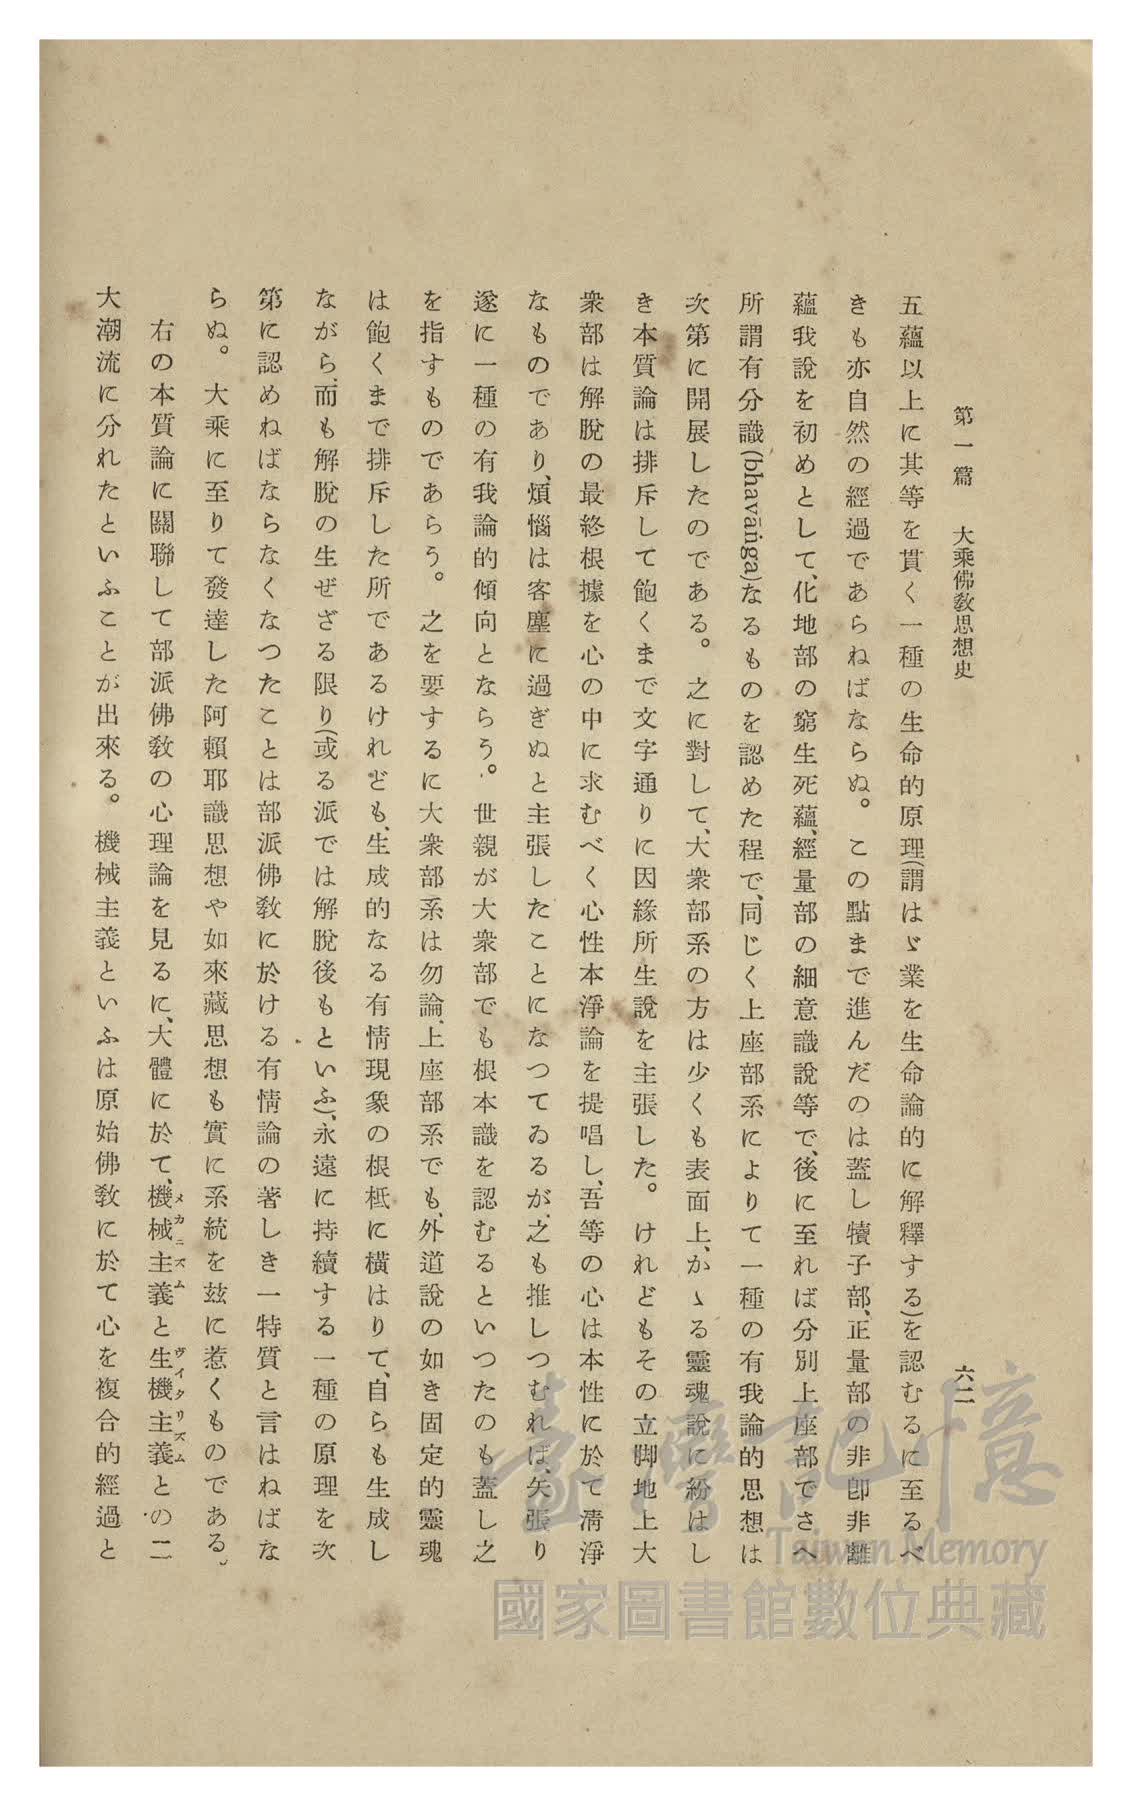 第一篇 大乘佛教思想史
六二
五蘊以上に其等を貫く一種の生命的原理(謂はゞ業を生命論的に解釋する)を認むるに至るべ
きも亦自然の經過であらねばならぬ。この點まで進んだのは蓋し犢子部、正量部の非卽非離
蘊我說を初めとして、化地部の窮生死蘊、經量部の細意識說等で、後に至れば分別上座部でさへ
所謂有分識(bhavāṅga)なるものを認めた程で、同じく上座部系によりて一種の有我論的思想は
次第に開展したのである。之に對して、大衆部系の方は少くも表面上、かゝる靈魂說に紛はし
き本質論は排斥して飽くまで文字通りに因緣所生說を主張した。けれどもその立脚地上大
衆部は解脫の最終根據を心の中に求むべく心性本淨論を提唱し、吾等の心は本性に於て淸淨
なものであり、煩惱は客塵に過ぎぬと主張したことになつてゐるが、之も推しつむれば、矢張り
遂に一種の有我論的傾向とならう。世親が大衆部でも根本識を認むるといつたのも蓋し之
を指すものであらう。之を要するに大衆部系は勿論、上座部系でも、外道說の如き固定的靈魂
は飽くまで排斥した所であるけれども、生成的なる有情現象の根柢に橫はりて、自らも生成し
ながら、而も解脫の生ぜざる限り(或る派では解脫後もといふ)、永遠に持續する一種の原理を次
第に認めねばならなくなつたことは部派佛教に於ける有情論の著しき一特質と言はねばな
らぬ。大乘に至りて發達した阿賴耶識思想や如來藏思想も實に系統を玆に惹くものである。
右の本質論に關聯して部派佛教の心理論を見るに、大體に於て、機械主義メカニズムと生機主義ヴイタリズムとの二
大潮流に分れたといふことが出來る。機械主義といふは原始佛教に於て心を複合的經過と
臺灣記憶
Taiwan Memory
國家圖書館數位典藏